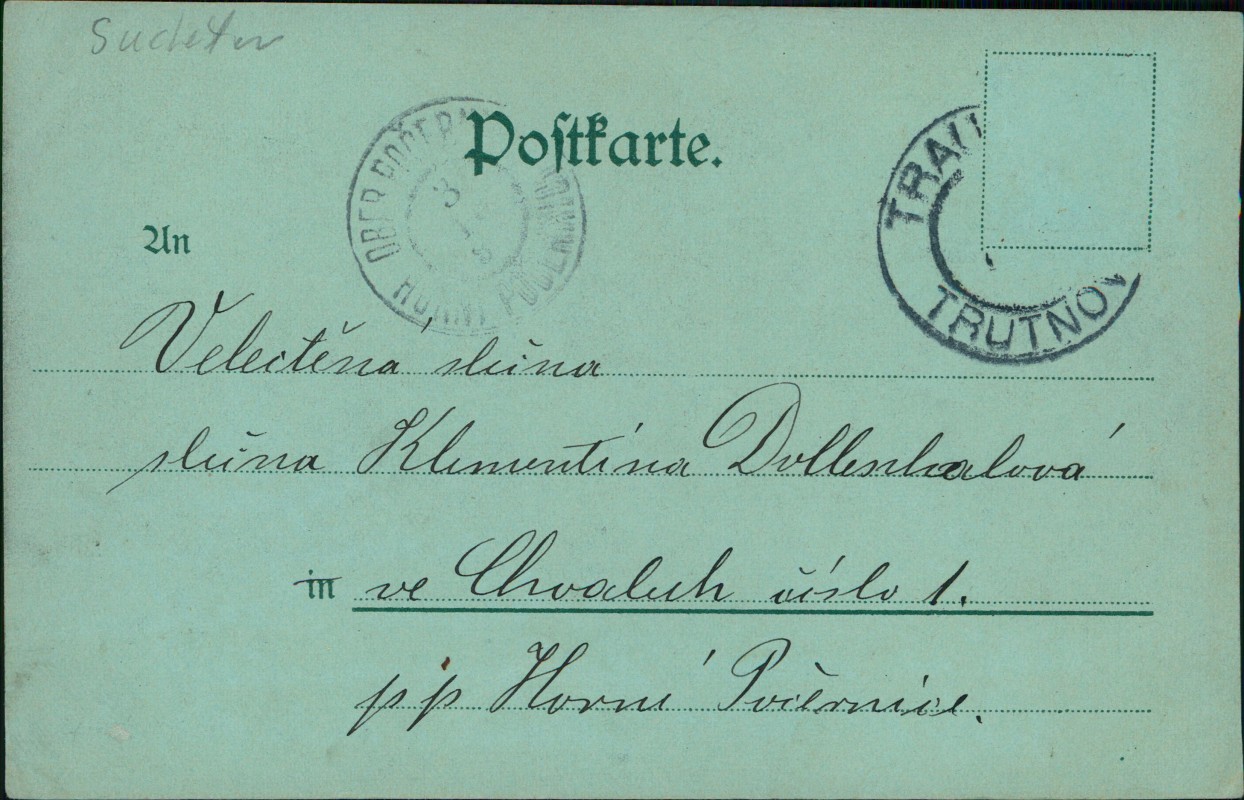 Sudeten
Postkarte.
OBER POČERN
HORNÍ POČERN
3
TRAU
TRUTNOV
An
Velectěná slečna
slečna Klementina Dollenhalová
in ve Chvalech číslo 1.
pp Horní Počernice.